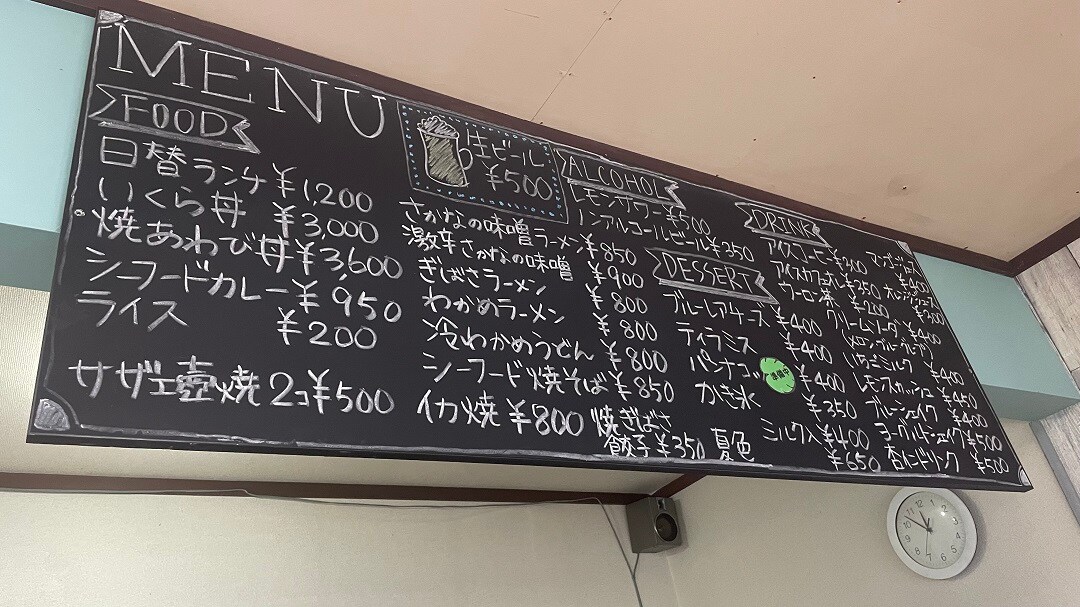 MENU
FOOD
日替ランチ ¥1,200
いくら丼 ¥3,000
焼あわび丼 ¥3,600
シーフードカレー ¥950
ライス ¥200
サザエ壺焼 2コ ¥500
生ビール
¥500
さかなの味噌ラーメン ¥850
激辛さかなの味噌 ¥900
ぎばさラーメン ¥800
わかめラーメン ¥800
冷わかめうどん ¥800
シーフード焼そば ¥850
イカ焼 ¥800
焼ぎばさ
餃子 ¥350
ALCOHOL
レモンサワー ¥500
ノンアルコールビール ¥350
DESSERT
ブルーレアチーズ ¥400
ティラミス ¥400
パンナコッ ¥400
準備中
かき氷 ¥350
ミルク入 ¥400
夏色 ¥650
DRINK
アイスコーヒー ¥300
アイスカフェオレ ¥350
ウーロン茶 ¥200
クリームソーダ ¥400
(メロン・ブルーハワイ)
いちごミルク ¥400
レモンスカッシュ ¥450
ブルーシェイク ¥400
ヨーグルトシェイク ¥500
杏仁ドリンク ¥500
マンゴジュース ¥400
オレンジジュース ¥300